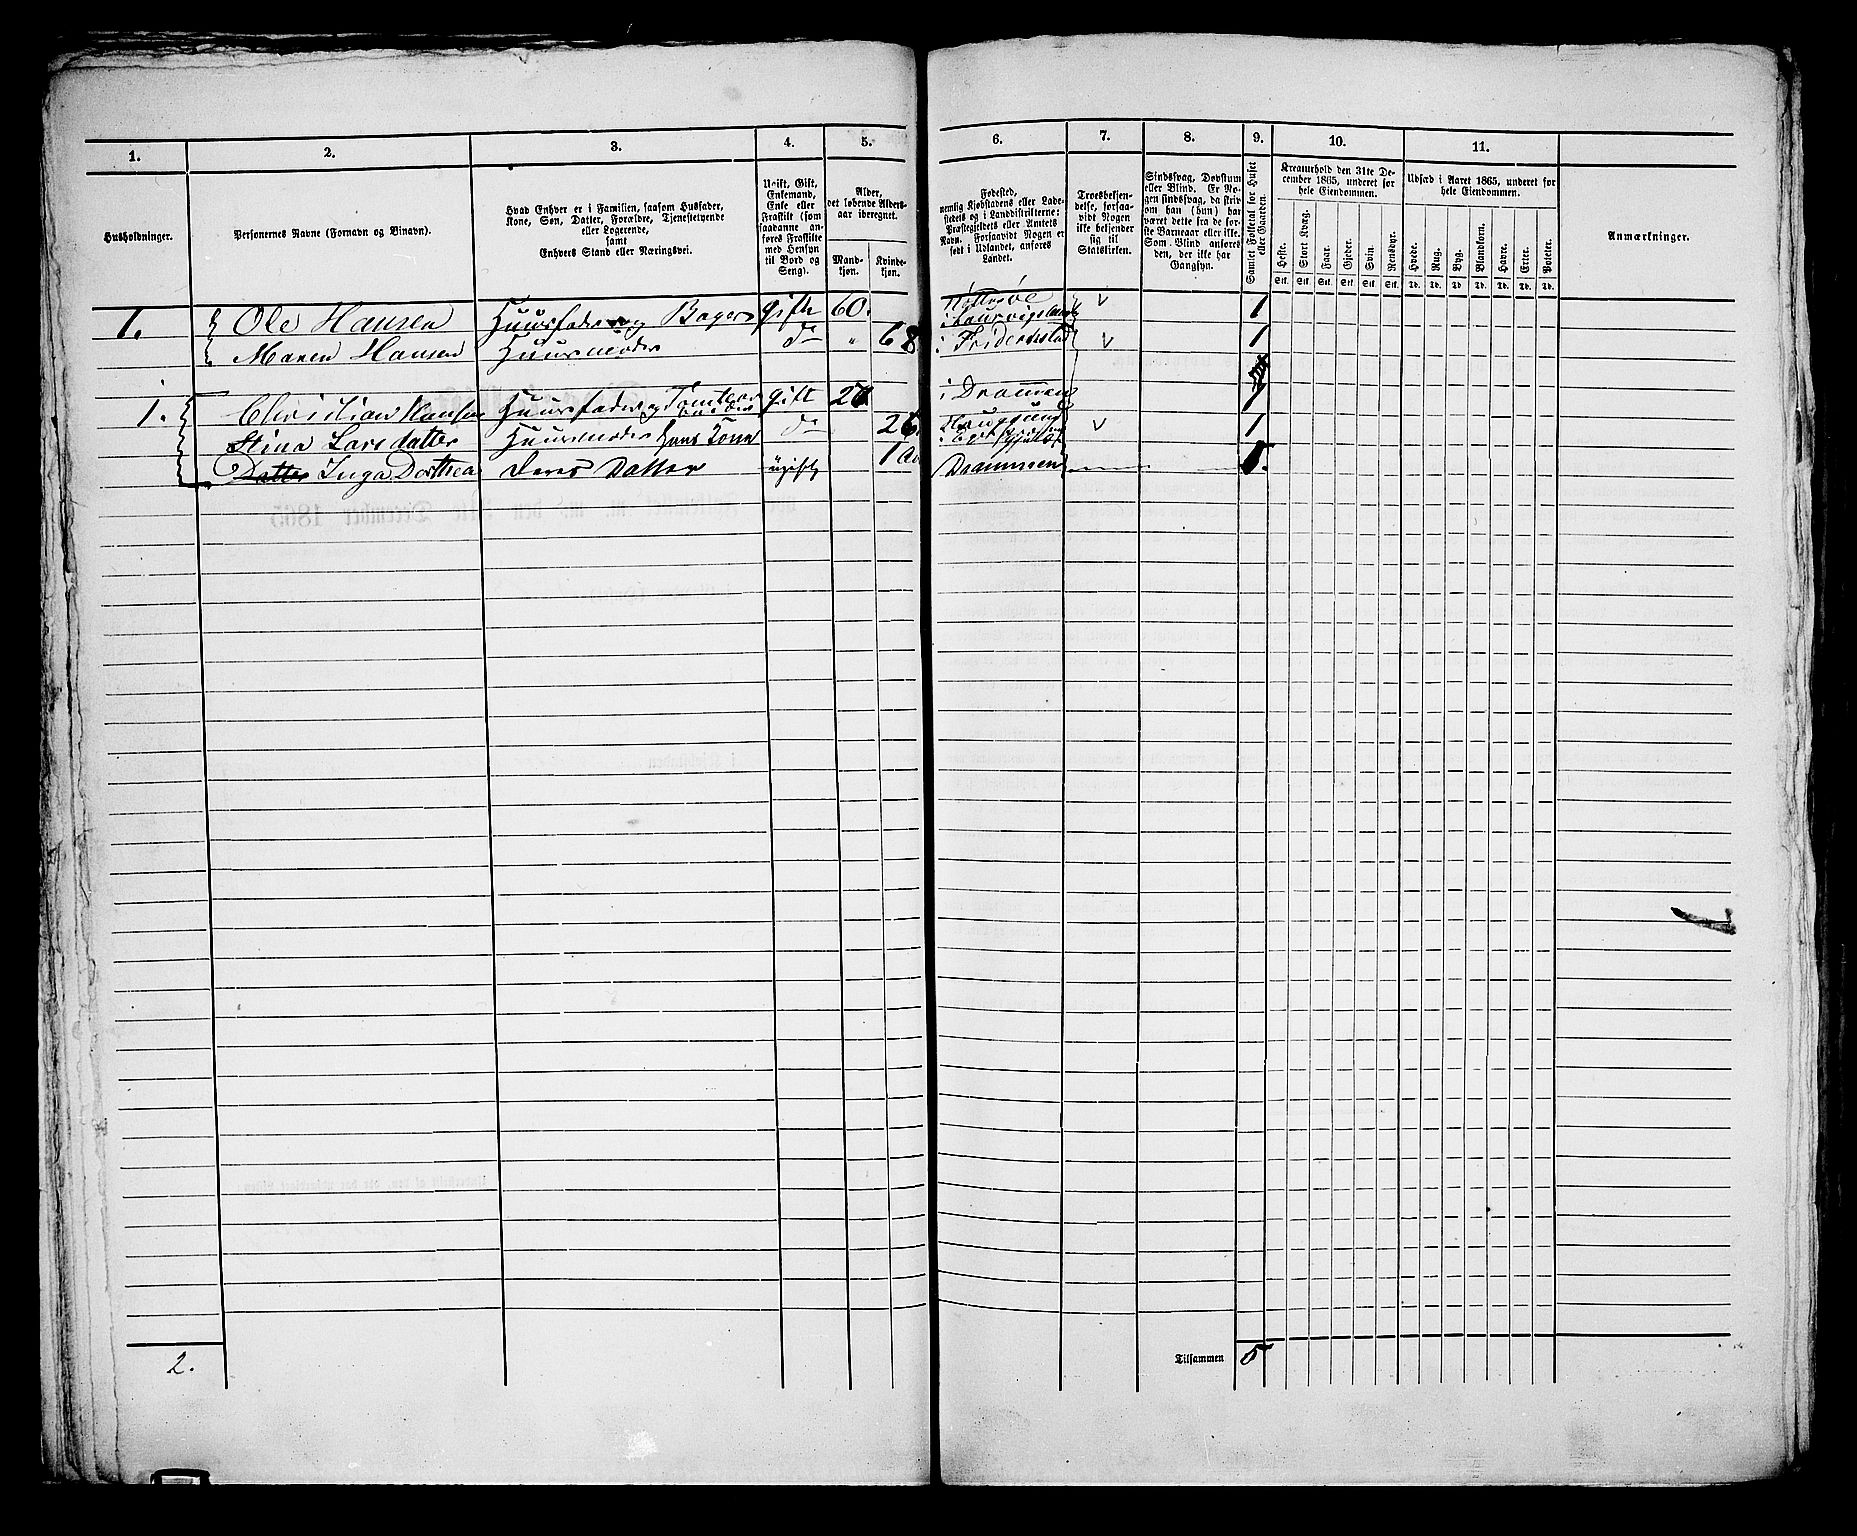 1.
2.
3.
4.
5.
6.
7.
8.
9.
10.
11.
Husholdninger.
Personernes Navne (Fornavn og Tilnavn).
Hvad Enhver er i Familien, saasom Husfader,
Kone, Søn, Datter, Forældre, Tjenestetyende
eller Logerende,
samt
Enhvers Stand eller Næringsvei.
Ugift, Gift,
Enkemand,
Enke eller
Fraskilt (som
saadanne an-
føres Fraskilte
med Hensyn
til Bord og
Seng).
Alder,
det løbende Alders-
aar iberegnet.
Mand-
kjøn.
Kvinde-
kjøn.
Fødested,
nemlig Kjøbstadens eller Lade-
stedets og i Landdistrikterne:
Præstegjeldets eller Amtets
Navn. Forsaavidt Nogen er
født i Udlandet, anføres
Landet.
Troesbekjen-
delse, forsaa-
vidt Nogen
ikke bekjender
sig til
Statskirken.
Sindssvag, Døvstum
eller Blind. Er No-
gen sindssvag, da skriv
om han (hun) har
været dette fra de før-
ste Barneaar eller ikke.
Som Blind anføres
den, der ikke har
Gangsyn.
Samlet Folketal for Huset
eller Gaarden.
Kreaturhold den 31te De-
cember 1865, underet for
hele Eiendommen.
Heste.
Stort Kvæg.
Faar.
Gjeder.
Svin.
Rensdyr.
Stk. Stk. Stk. Stk. Stk. Stk.
Udsæd i Aaret 1865, underet for
hele Eiendommen.
Hvede.
Rug.
Byg.
Blandkorn.
Havre.
Erter.
Poteter.
Td. Td. Td. Td. Td. Td. Td.
Anmærkninger.
1. Ole Hansen Huusfader og Bager gift 60. 1
Maren Hansen Huusmoder do " 68 i Frideriksstad 1
1. Christian Hansen Huusfader og gift 27 i Drammen
Stina Larsdatter Huusmoder Hans Kone do 26 1
Datter Inga Dorthea deres Datter ugift 1 Drammen 1.
2. Tilsammen 5